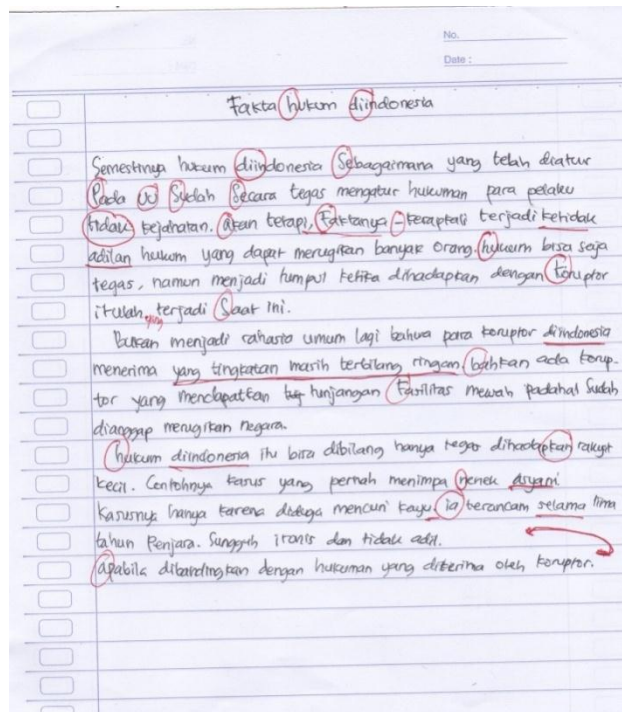 No.
Date :
Fakta hukum diindonesia
Semestinya hukum diindonesia Sebagaimana yang telah diatur
Pada UU Sudah Secara tegas mengatur hukuman para pelaku
tidak kejahatan. Akan tetapi, Faktanya - kerapkali terjadi ketidak
adilan hukum yang dapat merugikan banyak orang. hukum bisa saja
tegas, namun menjadi tumpul ketika dihadapkan dengan Koruptor
itulah yang terjadi Saat ini.
Bukan menjadi rahasia umum lagi bahwa para koruptor diindonesia
menerima yang tingkatan masih terbilang ringan bahkan ada korup-
tor yang mendapatkan tunjangan Fasilitas mewah padahal Sudah
dianggap merugikan negara.
hukum diindonesia itu bisa dibilang hanya tegas dihadapkan rakyat
kecil. Contohnya kasus yang pernah menimpa nenek asyani
Kasusnya hanya karena diduga mencuri kayu, ia terancam selama lima
tahun Penjara. Sungguh ironis dan tidak adil.
apabila dibandingkan dengan hukuman yang diterima oleh koruptor.